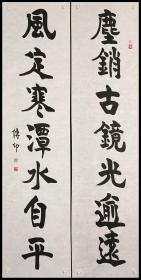 塵銷古鏡光逾遠
風定寒潭水自平
傳印